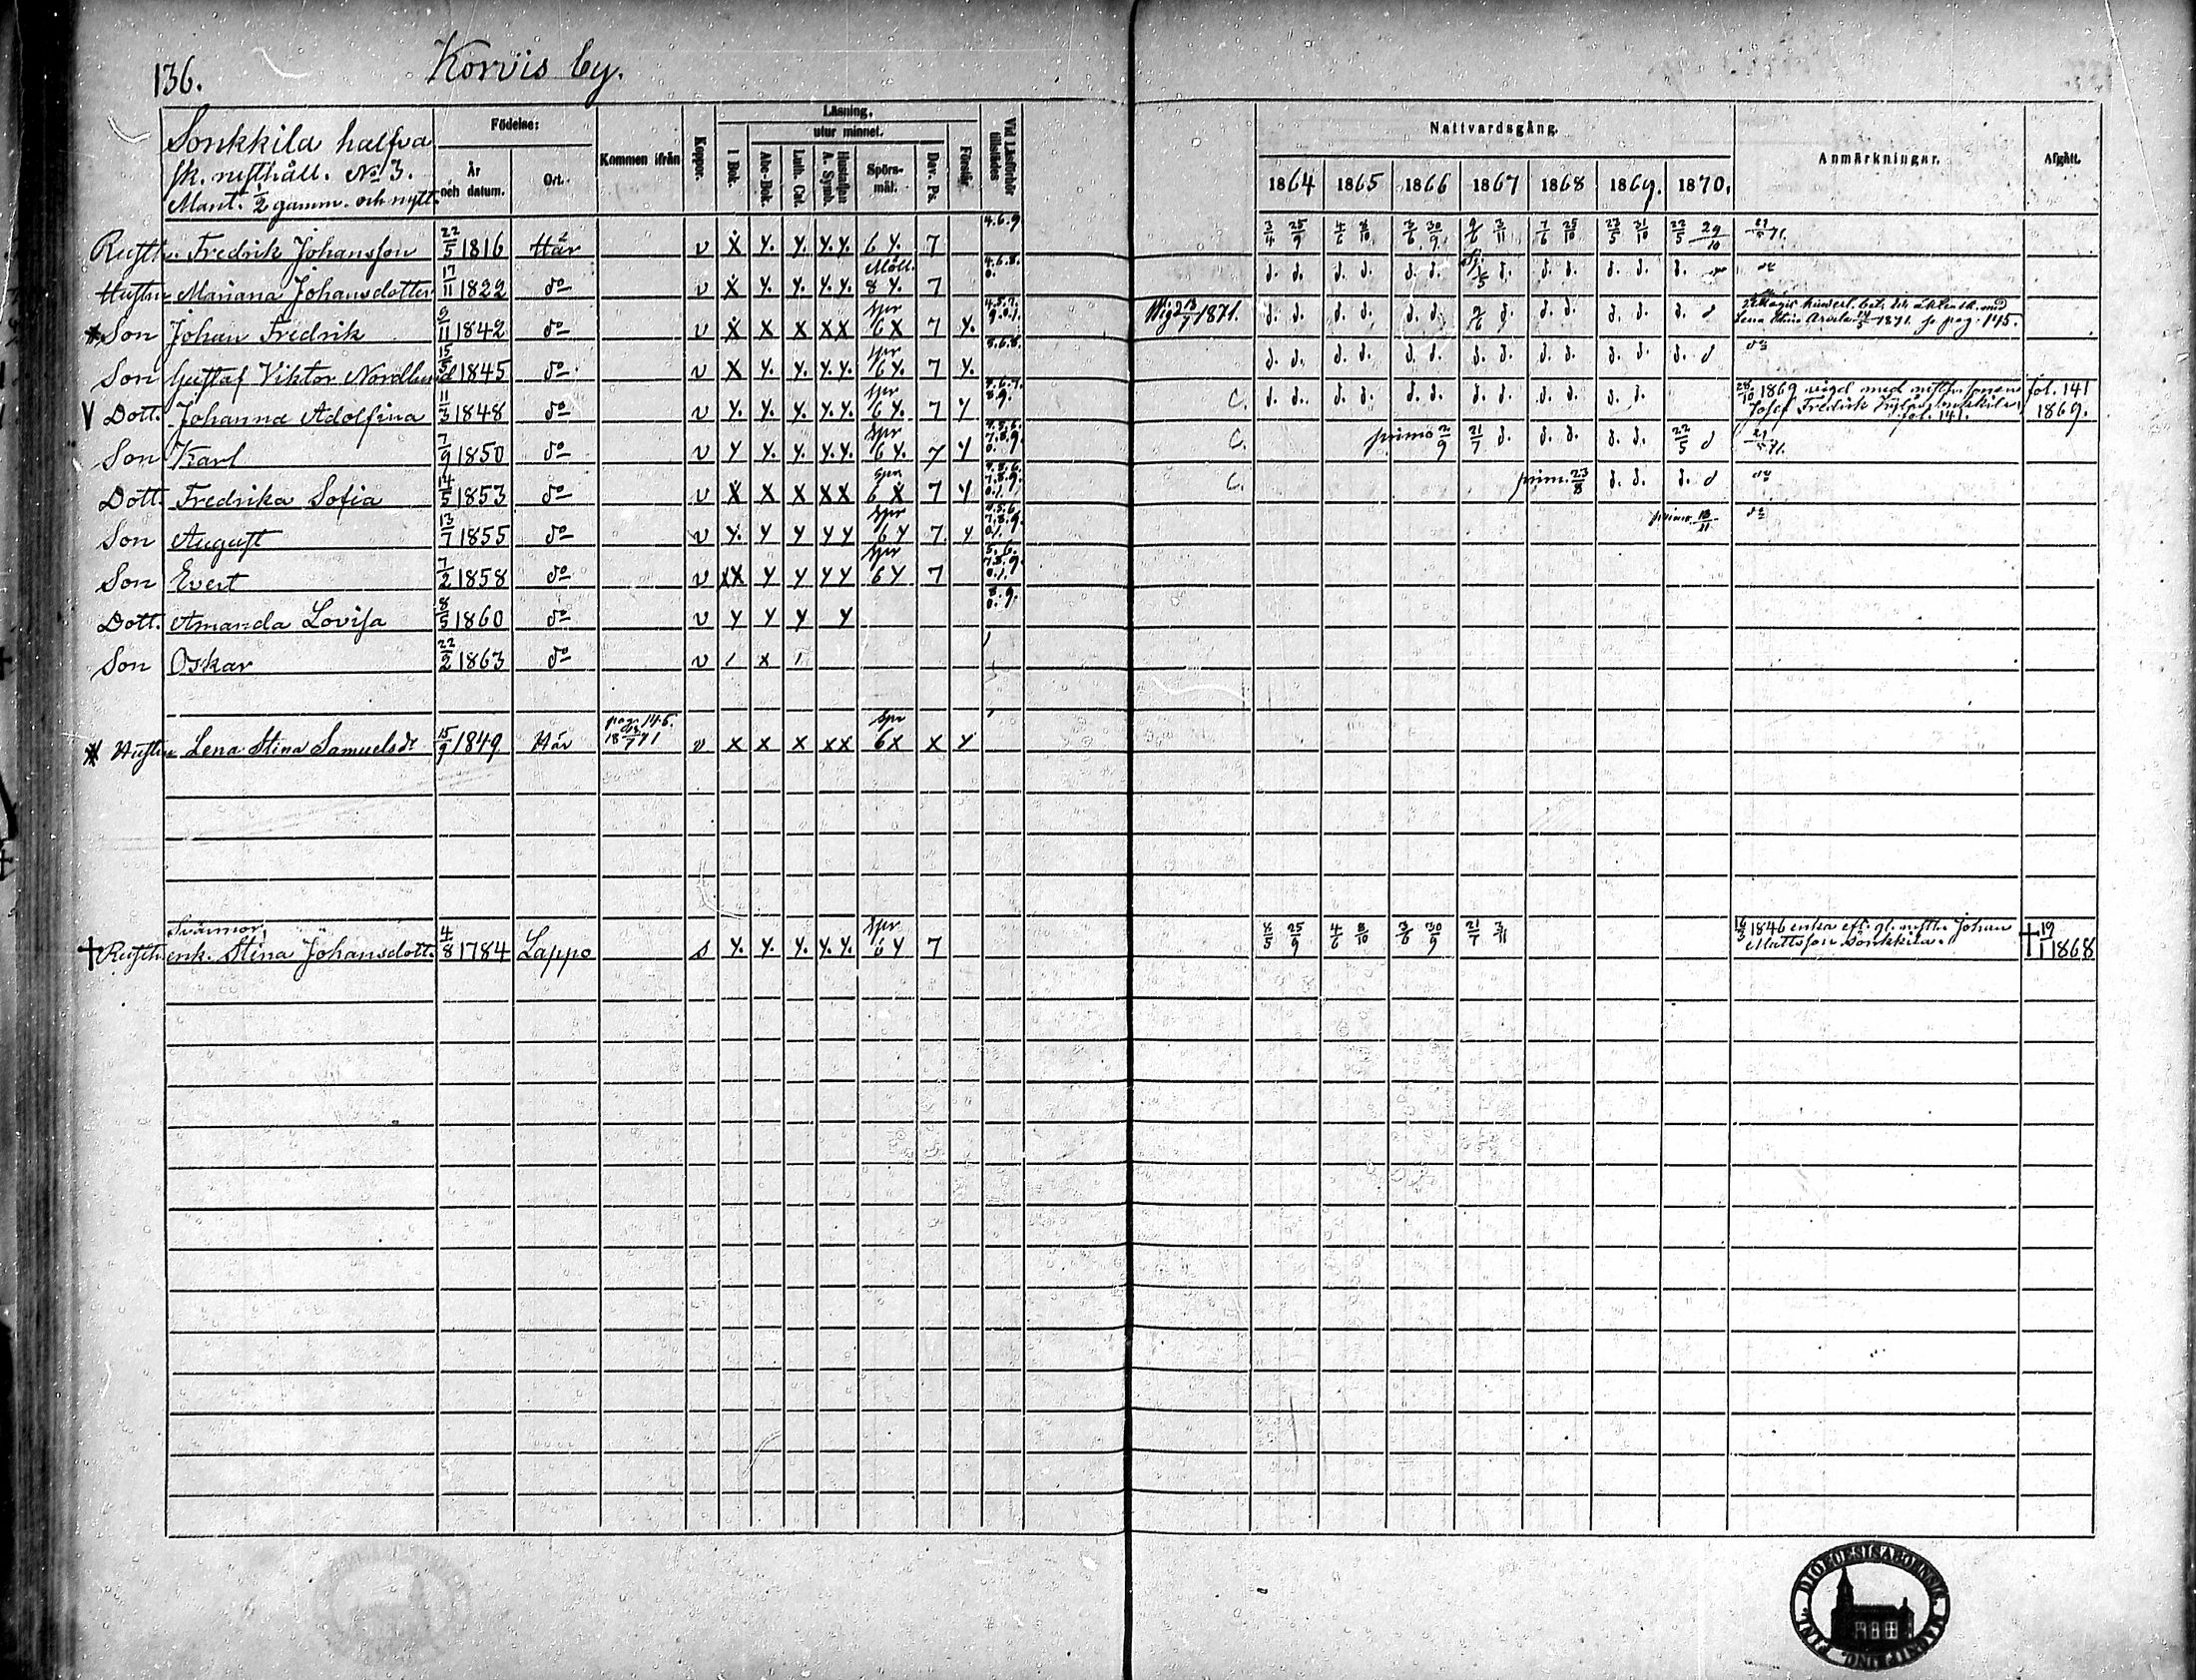 136. Korvis by.
Sonkkila halfva
sk. rusthåll. No 3.
Mant. ½ gamm. och nytt.
Födelse:
År och datum.
Ort.
Kommen ifrån
Koppor.
Läsning,
utur minnet.
I Bok.
Abc-Bok.
Luth. Cat.
Hustaflan A. Symb.
Spörsmål.
Dav. Ps.
Förstår.
Vid Läsförhör tillstädes
Nattvardsgång.
1864 1865 1866 1867 1868 1869. 1870.
Anmärkningar.
Afgått.
Rusth. Fredrik Johansson 22/5 1816 Här v X Y. Y. Y.Y. 6 Y. 7 4.6.9 3/4 25/9 4/6 8/10 3/6 30/9 3/11 7/6 25/10 23/5 31/10 22/5 29/10
Hustru Mariana Johansdotter 17/11 1822 do v X Y. Y. Y.Y. Möll. 8 Y. 7 d. d. d. d. d. d. d. d. d. d. d. d. do
* Son Johan Fredrik 5/11 1842 do v X X X XX Spr 6X 7 Y. 1871. d. d. d. d. d. d. d. d. d. d. d. d. d Lena Stina 1871. se pag. 145.
Son Gustaf Viktor Nordlund 15/5 1845 do v X Y. Y. Y.Y. Spr 6Y. 7 Y. d. d. d. d. d. d. d. d. d. d. d. d. d. d do
V Dott. Johanna Adolfina 11/3 1848 do v Y. Y. Y. Y.Y. Spr 6 Y. 7 Y C. d. d. d. d. d. d. d. d. d. d. d. d. 28/10 1869 vigd med rusth. sonen Josef Fredrik fol. 141. fol. 141 1869.
Son Karl 7/9 1850 do v Y Y. Y. Y.Y. Spr 6 Y. 7 Y C. primo 2/9 21/7 d. d. d. d. d. 22/5 d
Dott. Fredrika Sofia 14/5 1853 do v X X X XX Spr 6 X 7 Y C. prim. 23/8 d. d. d. d do
Son August 13/7 1855 do v Y. Y Y YY Spr 6Y 7. Y primo 13/11 do
Son Evert 7/2 1858 do v XX Y Y YY Spr 6Y 7
Dott. Amanda Lovisa 8/5 1860 do v Y Y Y Y 8.9. 0.
Son Oskar 22/2 1863 do v / x /
* Hustru Lena Stina Samuelsdr 15/9 1849 Här pag. 145. v X X X XX Spr 6X X Y
Svärmor,
† Rusth. enk. Stina Johansdott. 4/8 1784 Lappo s Y. Y. Y. Y.Y. Spr 6 Y 7 8/5 25/9 4/6 8/10 3/6 30/9 21/7 3/11 16/3 1846 enka eft. gl. rusth. Johan Mattsson Sonkkila. † 19/1 1868